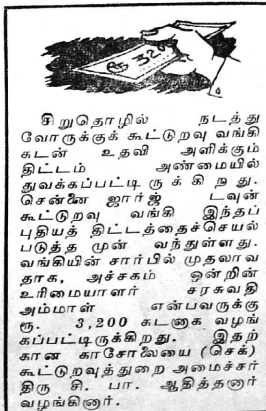 ரூ 320
சிறுதொழில் நடத்து
வோருக்குக் கூட்டுறவு வங்கி
கடன் உதவி அளிக்கும்
திட்டம் அண்மையில்
துவக்கப்பட்டிருக்கிறது.
சென்னை ஜார்ஜ் டவுன்
கூட்டுறவு வங்கி இந்தப்
புதியத் திட்டத்தைச்செயல்
படுத்த முன் வந்துள்ளது.
வங்கியின் சார்பில் முதலாவ
தாக, அச்சகம் ஒன்றின்
உரிமையாளர் சரசுவதி
அம்மாள் என்பவருக்கு
ரூ. 3,200 கடனாக வழங்
கப்பட்டிருக்கிறது. இதற்
கான காசோலையை (செக்)
கூட்டுறவுத்துறை அமைச்சர்
திரு சி. பா. ஆதித்தனார்
வழங்கினார்.